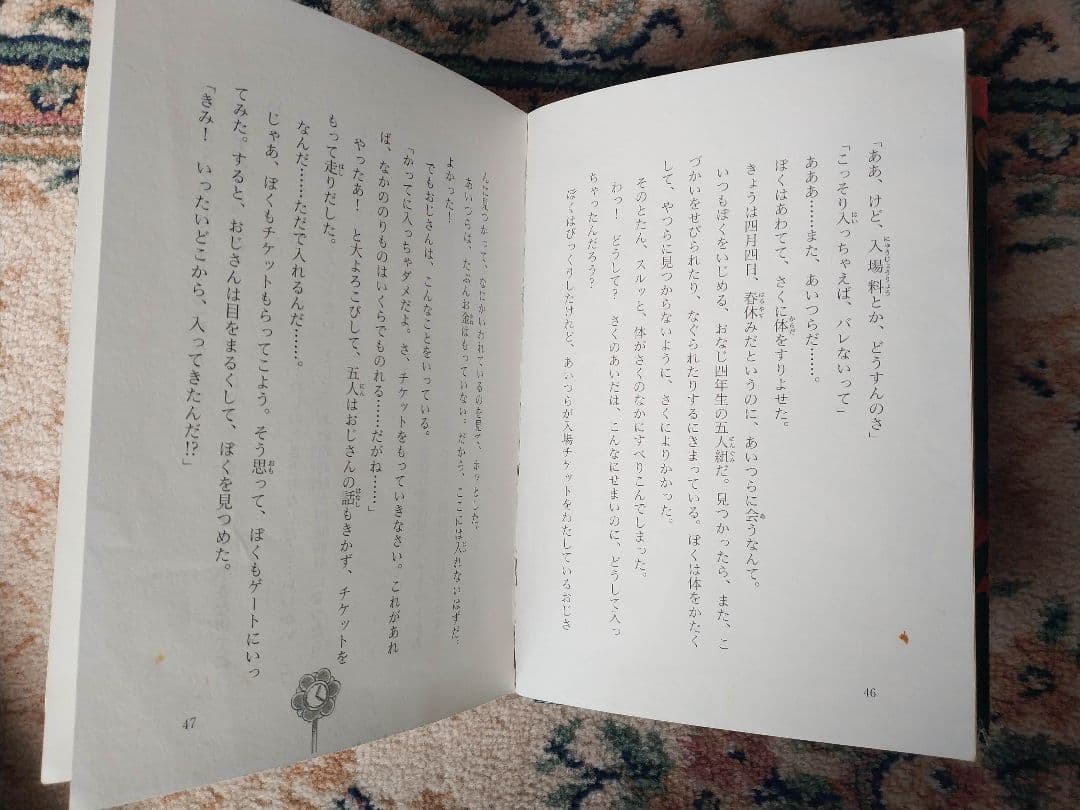 「ああ、けど、入場料とか、どうすんのさ」
「こっそり入っちゃえば、バレないって」
あああ……また、あいつらだ……。
ぼくはあわてて、さくに体をすりよせた。
きょうは四月四日、春休みだというのに、あいつらに会うなんて。
いつもぼくをいじめる、おなじ四年生の五人組だ。見つかったら、また、こ
づかいをせびられたり、なぐられたりするにきまっている。ぼくは体をかたく
して、やつらに見つからないように、さくによりかかった。
そのとたん、スルッと、体がさくのなかにすべりこんでしまった。
わっ！　どうして？　さくのあいだは、こんなにせまいのに、どうして入っ
ちゃったんだろう？
ぼくはびっくりしたけれど、あいつらが入場チケットをわたしているおじさ
46
んに見つかって、なにかいわれているのを見て、ホッとした。
あいつらは、たぶんお金はもっていない。だから、ここには入れないはずだ。
よかった！
でもおじさんは、こんなことをいっている。
「かってに入っちゃダメだよ。さ、チケットをもっていきなさい。これがあれ
ば、なかののりものはいくらでものれる……だがね……」
やったあ！　と大よろこびして、五人はおじさんの話もきかず、チケットを
もって走りだした。
なんだ……ただで入れるんだ……。
じゃあ、ぼくもチケットもらってこよう。そう思って、ぼくもゲートにいっ
てみた。すると、おじさんは目をまるくして、ぼくを見つめた。
「きみ！　いったいどこから、入ってきたんだ!?」
47